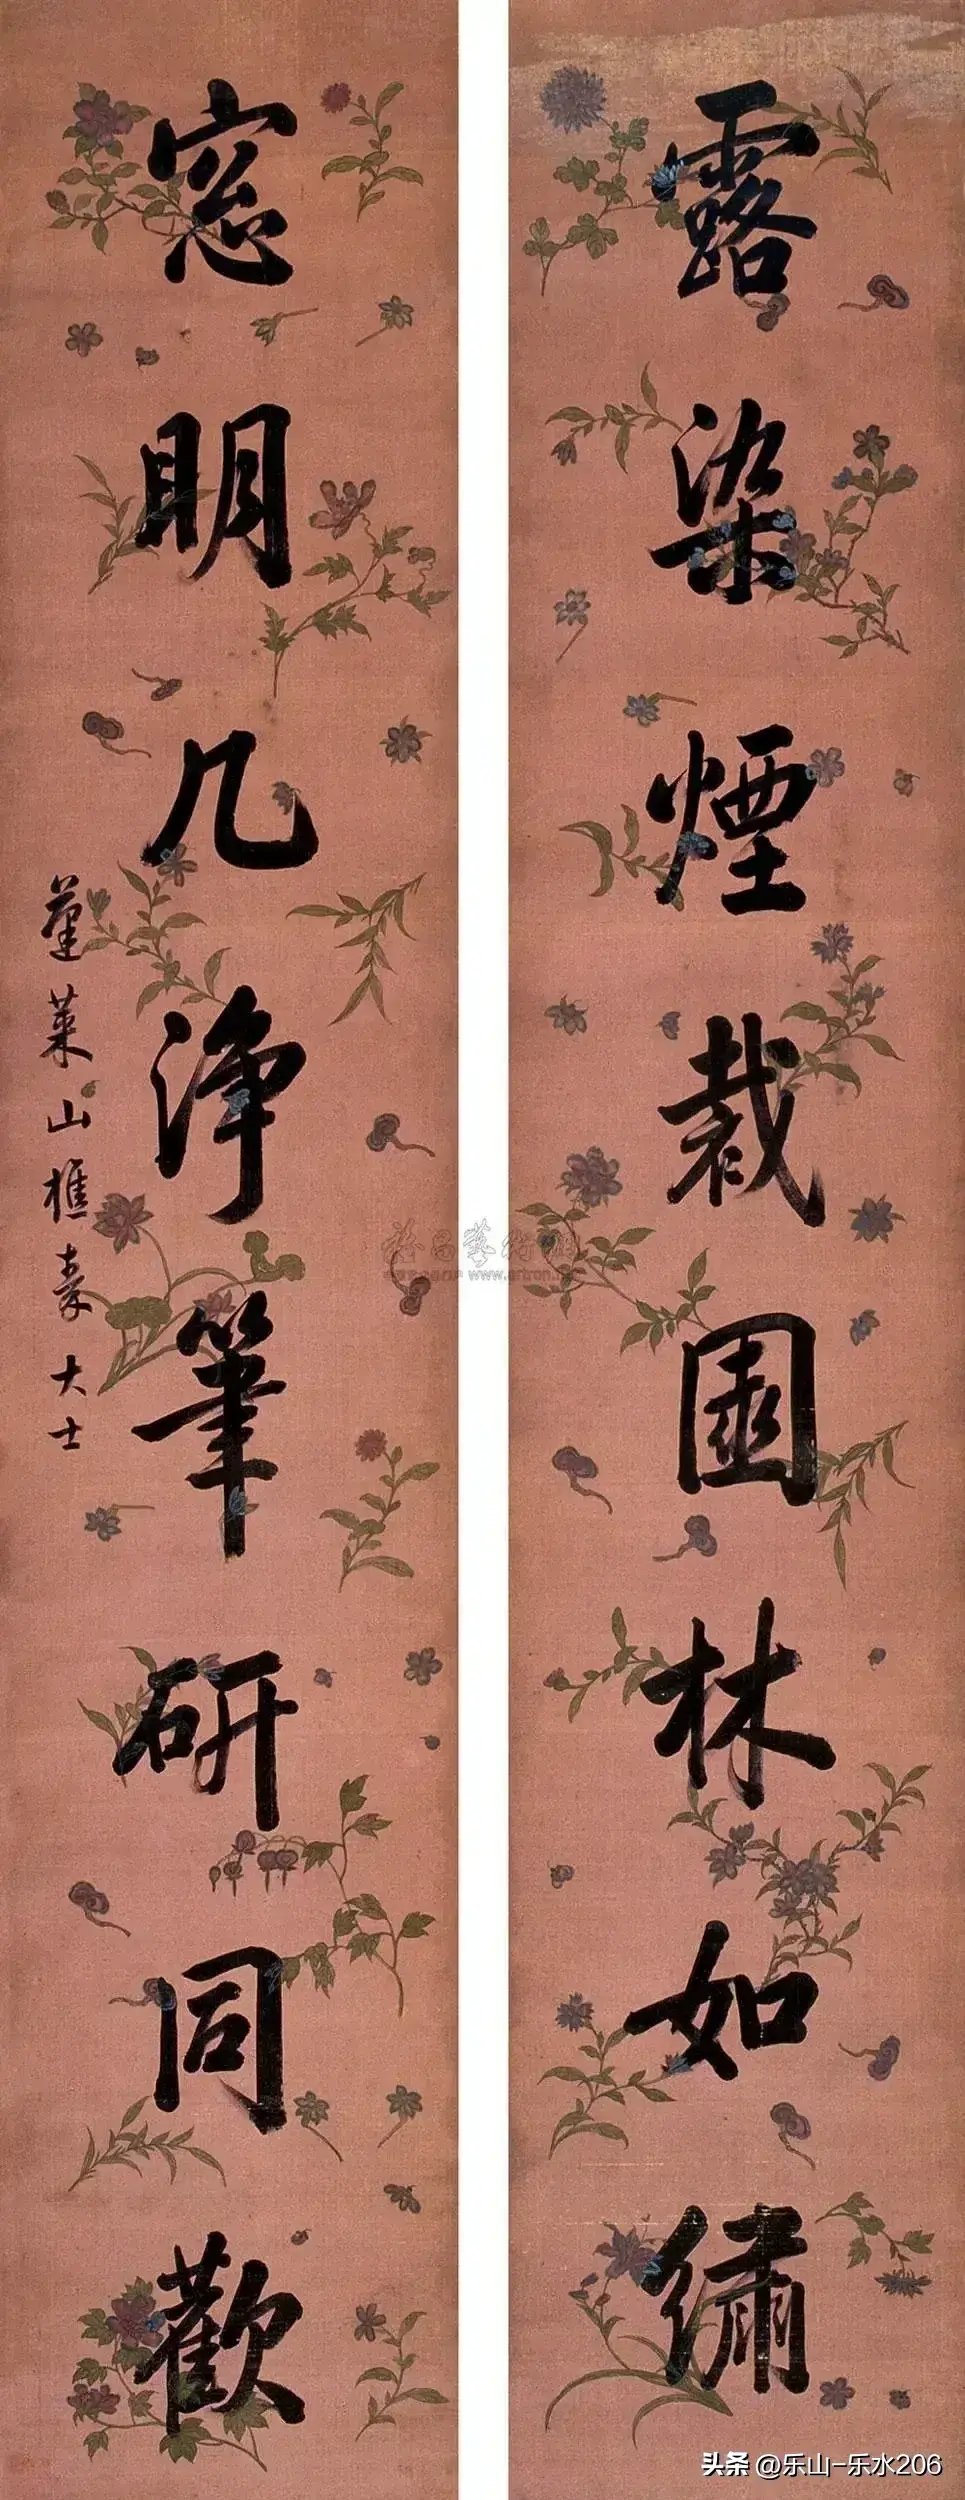 露染煙裁園林如繡
窓明几淨筆研同歡
蓬萊山樵秦大士
www.artron.net
头条 @乐山-乐水206